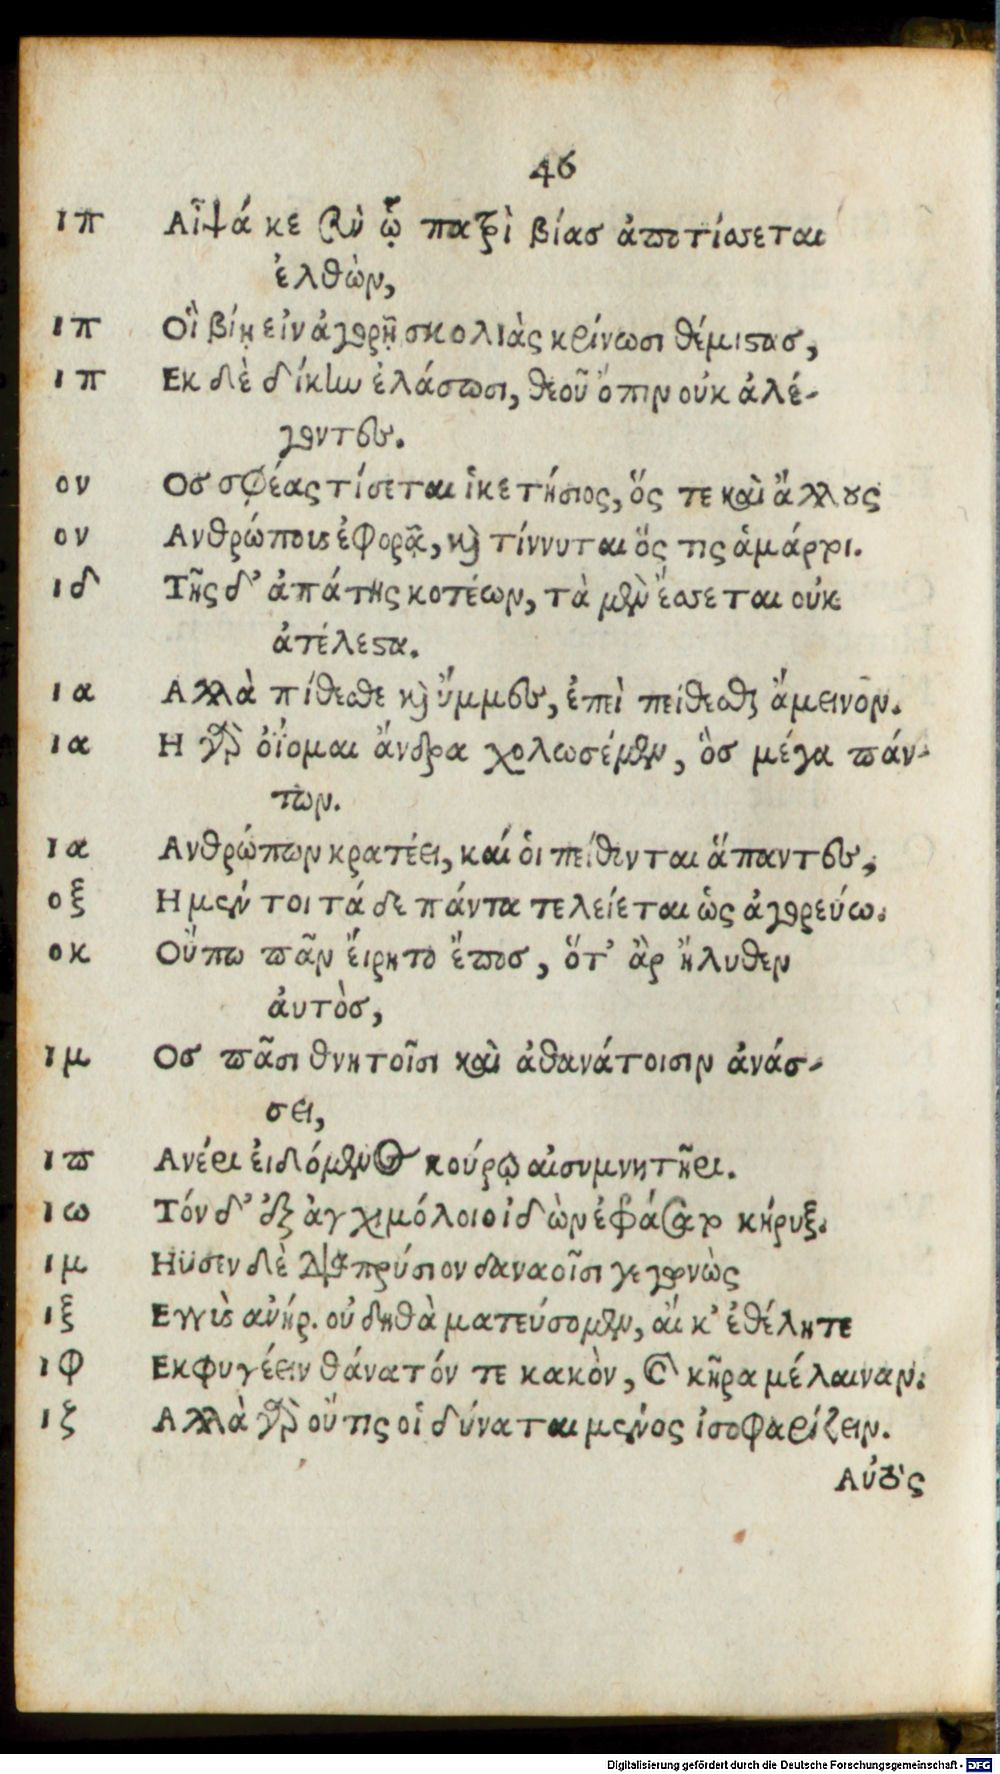 46
ιπ Αἶψά κε σὺν ᾧ πατρὶ βίασ ἀποτίσεται
ἐλθὼν,
ιπ Οἳ βίῃ εἰν ἀγορῇ σκολιὰς κρίνωσι θέμιστασ,
ιπ Εκ δὲ δίκην ἐλάσωσι, θεοῦ ὄπιν οὐκ ἀλέ-
γοντες.
ον Οσ σφέας τίσεται ἱκετήσιος, ὅς τε καὶ ἄλλους
ον Ανθρώπους ἐφορᾷ, καὶ τίννυται ὅς τις ἁμάρτῃ.
ιδ Τῆς δ' ἀπάτης κοτέων, τὰ μὲν ἔσσεται οὐκ
ἀτέλεστα.
ια Αλλὰ πίθεσθε καὶ ὔμμες, ἐπεὶ πείθεσθαι ἄμεινον.
ια Η γὰρ ὀΐομαι ἄνδρα χολωσέμεν, ὃσ μέγα πάν-
των.
ια Ανθρώπων κρατέει, καί ὁι πείθονται ἅπαντες,
οξ Η μέν τοι τά δε πάντα τελείεται ὡς ἀγορεύω.
οκ Οὔπω πᾶν ἔιρητο ἔποσ, ὅτ' ἂρ ἤλυθεν
ἀυτὸσ,
ιμ Οσ πᾶσι θνητοῖσι καὶ ἀθανάτοισιν ἀνάσ-
σει,
ιπ Ανέρι ἐιδόμενος κούρῳ αἰσυμνητῆρι.
ιω Τόν δ' ἐξ ἀγχιμόλοιο ἰδὼν ἐφράσατο κήρυξ.
ιμ Ηϋσεν δὲ διαπρύσιον δαναοῖσι γεγωνὼς
ιξ Εγγὺς ἀνήρ. οὐ δηθὰ ματεύσομεν, ἄι κ' ἐθέλητε
ιφ Εκφυγέειν θάνατόν τε κακὸν, καὶ κῆρα μέλαιναν.
ιζ Αλλὰ γὰρ οὔ τις οἱ δύναται μένος ἰσοφαρίζειν.
Αὐτὸς
Digitalisierung gefördert durch die Deutsche Forschungsgemeinschaft - DFG